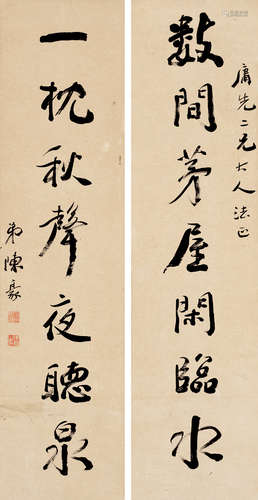 庸先二兄大人法正
數間茅屋閑臨水
一枕秋聲夜聽泉
弟陳豪